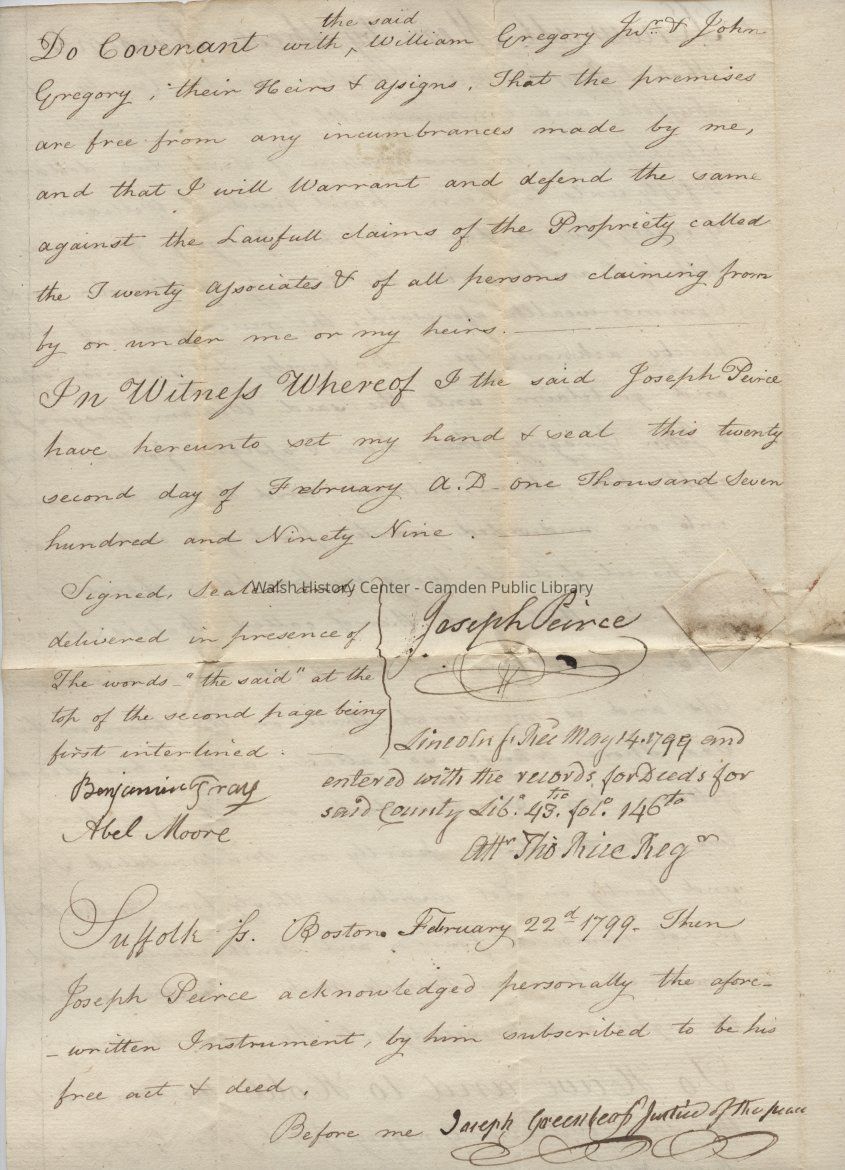 the said
Do Covenant with ^ William Gregory Junr. & John
Gregory, their Heirs & assigns, That the premises
are free from any incumbrances made by me,
and that I will Warrant and defend the same
against the Lawfull claims of the Propriety called
the Twenty associates & of all persons claiming from
by or under me or my heirs.
In Witness Whereof I the said Joseph Peirce
have hereunto set my hand & seal this twenty
second day of February A.D. one Thousand Seven
hundred and Ninety Nine.
Signed, sealed and
delivered in presence of
The words "the said" at the
top of the second page being
first interlined:
Benjamin Gray
Abel Moore
Walsh History Center - Camden Public Library
Joseph Peirce
Lincoln ss. Rec May 14. 1799 and
entered with the records for Deeds for
said County Libo. 43. folo. 146
Attr Tho Rice Regr
Suffolk ss. Boston. February 22d 1799. Then
Joseph Peirce acknowledged personally the afore-
-written Instrument, by him subscribed to be his
free act & deed.
Before me Joseph Greenleaf Justice of the peace